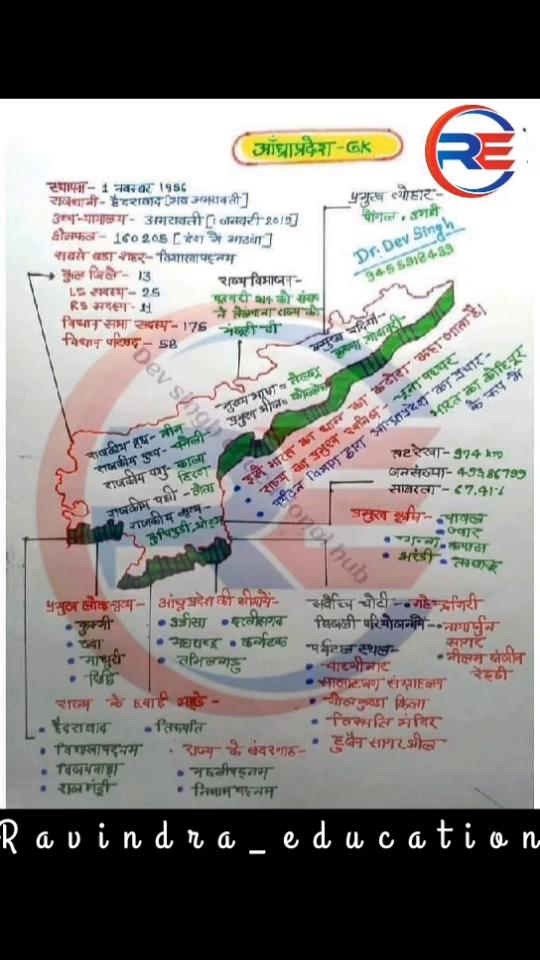 RE
आँध्राप्रदेश-GK
स्थापना- 1 नवम्बर 1956
राजधानी- हैदराबाद [अब अमरावती]
उच्च-न्यायालय - अमरावती [1 जनवरी 2019]
क्षेत्रफल - 160205 [देश में आठवां]
सबसे बडा शहर- विशाखापट्नम
कुल जिले- 13
LS सदस्य - 25
RS सदस्य - 11
विधान सभा सदस्य- 175
विधान परिषद - 58
प्रमुख त्योहार-
पोंगल, उगादी
Dr. Dev Singh
9455918489
राज्य विभाजन-
प्रमुख नदियाँ-
कृष्णा गोदावरी
मुख्य भाषा = तेलुगू
राजकीय वृक्ष- नीम
राजकीय पुष्प- चमेली
राजकीय पशु - काला
हिरण
राजकीय पक्षी - मैना
राजकीय नृत्य-
इसी भारत का धान का कटोरा कहा जाता है।
राज्य का प्रमुख खनिज
पर्यटन विभाग द्वारा आन्ध्राप्रदेश का प्रचार-
भारत का कोहिनूर
के रूप में
तटरेखा - 974 km
जनसंख्या - 49386799
साक्षरता - 67.41%
प्रमुख कृषि- • चावल
• ज्वार
• गन्ना • कपास
• अरंडी • तम्बाकू
Dev singh educational hub
प्रमुख लोकनृत्य-
• कुम्मी
• माथुरी
आंध्रप्रदेश की सीमायें-
• उड़ीसा • छत्तीसगढ
• महाराष्ट्र • कर्नाटक
• तमिलनाडु
सर्वोच्च चोटी-
बिजली परियोजनायें- • नागार्जुन
सागर
• नीलम संजीव
रेड्डी
पर्यटन स्थल-
• चारमीनार
• सालारजंग संग्रहालय
• गोलकुण्डा किला
• तिरूपति मंदिर
• हुसैन सागर झील
राज्य के हवाई अड्डे-
• हैदराबाद • तिरूपति
• विशाखापट्नम
• विजयवाड़ा
• राजमुंद्री
राज्य के बंदरगाह-
• मछलीपट्नम
• निजामपट्नम
Ravindra_education